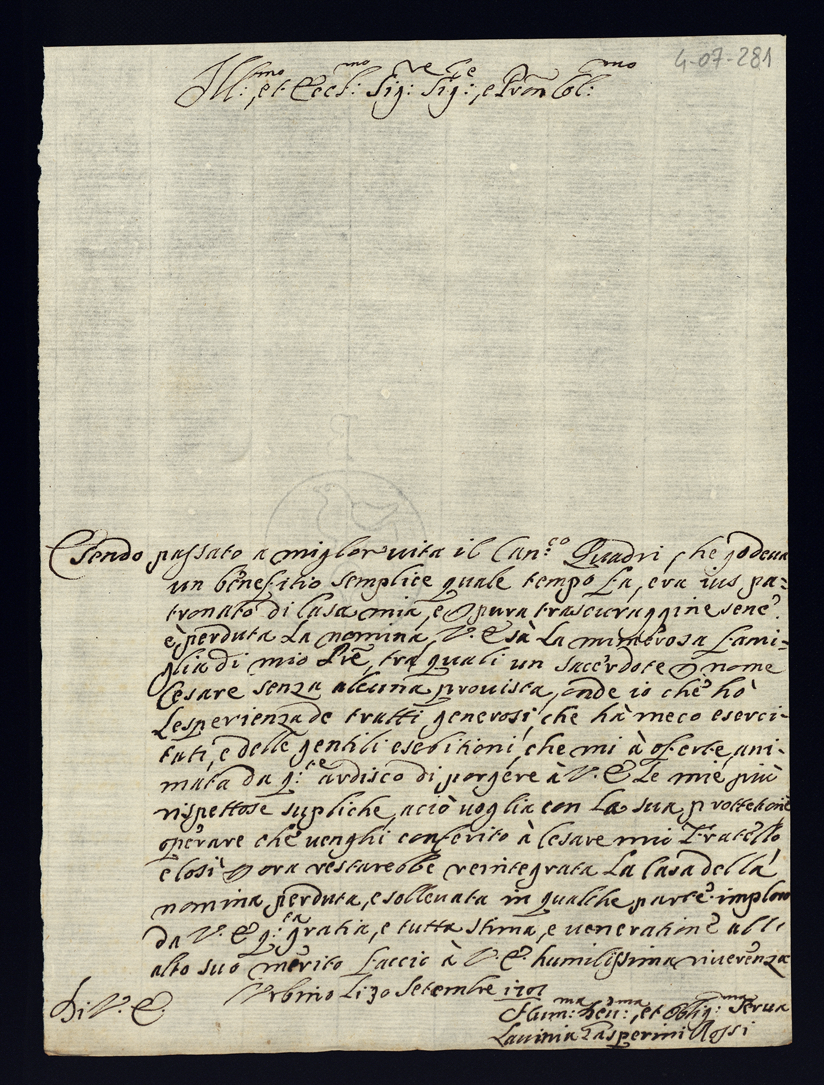 4-07-281
Ill:mo et Ecc:mo Sig:re Sig:re, e Pron Col:mo
Esendo passato a miglior uita il Can:co Quadri, che godeua
un benefitio semplice quale tempo fà, era ius pa:
tronato di Casa mia, e p pura trascuraggine sene
è perduta la nomina, V. E sà la numerosa fami:
glia di mio Pre, tra quali un sacerdote p nome
Cesare senza alcuna prouista, onde io che hò
lesperienza de tratti generosi, che hà meco eserci:
tati, e delle gentili esebitioni, che mi à oferte, ani:
mata da q:te ardisco di porgere à V. E le mie più
rispettose supliche, aciò uoglia con la sua prottetione
operare che uenghi conferito à Cesare mio Fratello
e così p ora restarebbe reintegrata la Casa della
nomina perduta, e solleuata in qualche parte. imploro
da V. E q:ta gratia, e tutta stima, e ueneratione all'
alto suo merito faccio à V. E. humilissima riuerenza
Urbino li 30 Setembre 1701
Di V. E.
Hum:ma Deu:ma, et Oblig:ma Serua
Lauinia Gasperini Rossi